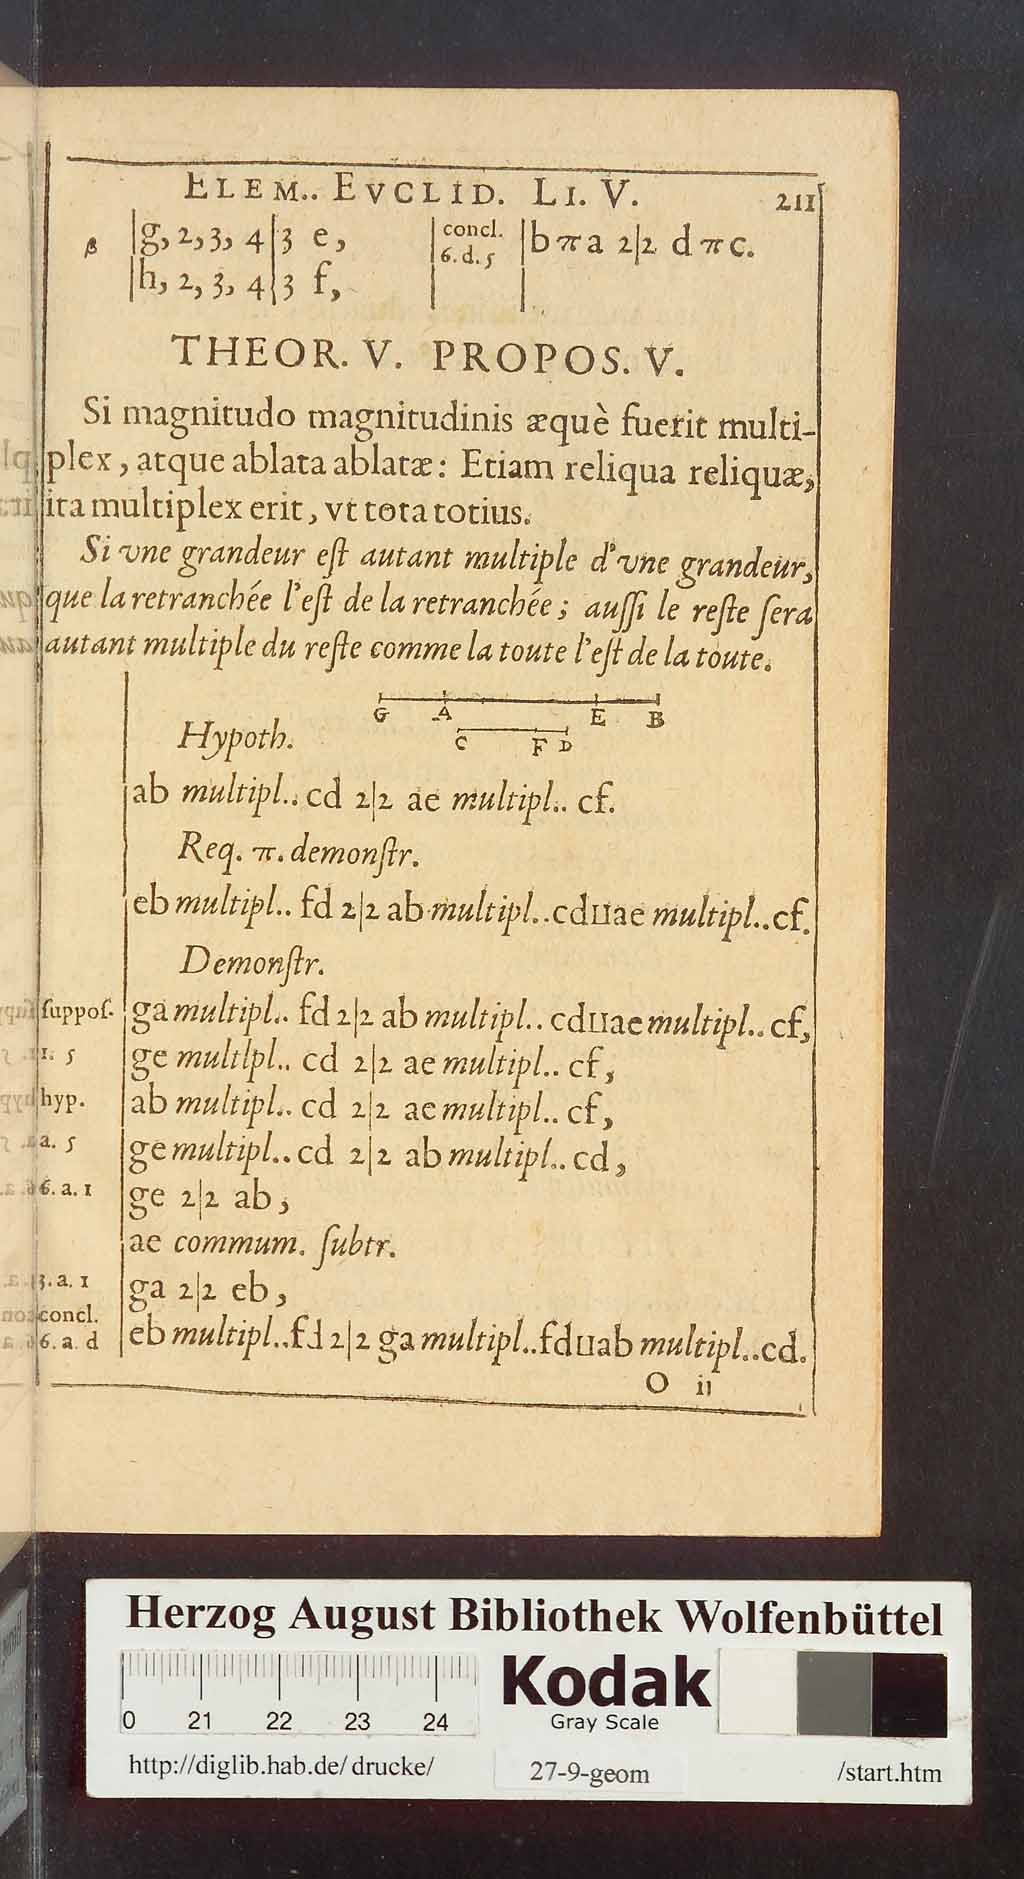 ELEM.. EVCLID. LI. V. 211
β |g, 2, 3, 4|3 e, |concl. 6. d. 5 |b π a 2|2 d π c.
|h, 2, 3, 4|3 f,
THEOR. V. PROPOS. V.
Si magnitudo magnitudinis æquè fuerit multi-
plex, atque ablata ablatæ: Etiam reliqua reliquæ,
ita multiplex erit, vt tota totius.
Si vne grandeur eſt autant multiple d'vne grandeur,
que la retranchée l'eſt de la retranchée; auſſi le reſte ſera
autant multiple du reſte comme la toute l'eſt de la toute.
G A E B
C F D
Hypoth.
ab multipl.. cd 2|2 ae multipl.. cf.
Req. π. demonſtr.
eb multipl.. fd 2|2 ab multipl.. cdııae multipl.. cf.
Demonſtr.
ſuppoſ. ga multipl.. fd 2|2 ab multipl.. cdııae multipl.. cf,
1. 5 ge multlpl.. cd 2|2 ae multipl.. cf,
hyp. ab multipl.. cd 2|2 ae multipl.. cf,
a. 5 ge multipl.. cd 2|2 ab multipl.. cd,
6. a. 1 ge 2|2 ab,
ae commum. ſubtr.
3. a. 1 ga 2|2 eb,
concl.
6. a. d eb multipl.. fd 2|2 ga multipl.. fdııab multipl.. cd.
O ij
Herzog August Bibliothek Wolfenbüttel
0 21 22 23 24
Kodak
Gray Scale
http://diglib.hab.de/drucke/ 27-9-geom /start.htm